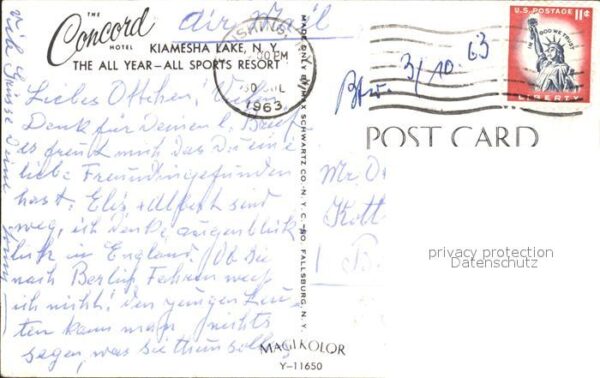 THE
Concord
HOTEL KIAMESHA LAKE, N. Y.
THE ALL YEAR – ALL SPORTS RESORT
Air Mail
PM
30 JUL
1963
U.S. POSTAGE 11¢
IN GOD WE TRUST
LIBERTY
3/10 63
POST CARD
Liebes Ottchen! Vielen
Dank für Deinen l. Brief
es freut mich das Du eine
liebe Freundin gefunden
hast. Elis + Alfred sind
weg, ich denke augenblick
lich in England. Ob Sie
nach Berlin Fahren weiß
ich nicht! Den jungen Leu-
ten kann man nichts
sagen, was sie thun sollen
Viele Grüsse Deine
MADE ONLY BY MAX SCHWARTZ CO. N.Y.C. – SO. FALLSBURG, N.Y.
Mr. O
privacy protection
Datenschutz
MAGIKOLOR
Y-11650